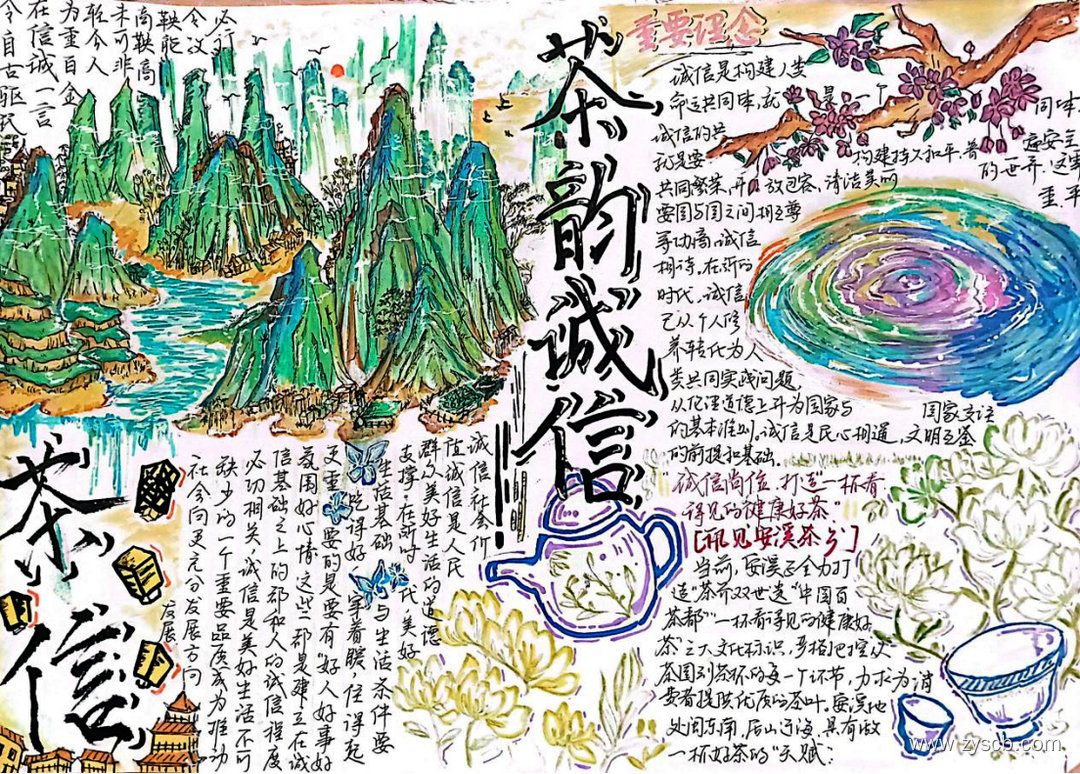 必行
令议
鞅能
商鞅高
未可非
轻今人
为重百金
在信诚一言
令自古驱民
茶韵诚信
重要理念
诚信是构建人类
命运共同体,就是一个
诚信的共同体
就是要构建持久和平、普遍安全
共同繁荣、开放包容、清洁美丽的世界.这
要国与国之间相互尊重.平
等协商,诚信
相待.在新的
时代,诚信
已从个人修
养转化为人
类共同实践问题
从伦理道德上升为国家与国家交往
的基本准则.诚信是民心相通,文明互鉴
的前提和基础.
"诚信尚位,打造一杯看
得见的健康好茶"
当前,安溪正全力打
造"茶界双世遗""中国百
茶都""一杯看得见的健康好
茶"三大文化标识,严格把控从
茶园到茶杯的每一个环节,力求为消
费者提供优质的茶叶.安溪地
处闽东南,居山近海,具有做
一杯好茶的"天赋".
诚信社会价
值诚信是人民
群众美好生活的道德
支撑.在新时代,美好
生活基础与生活条件要
吃得好,穿着暖,住得起
更重要的是要有"好人好事好
氛围好心情"这些都是建立在诚
信基础之上的邵和人的诚信程度
必切相关.诚信是美好生活不可
缺少的一个重要品质成为推动
社会向更充分发展方向
发展
茶信
www.zyscb.com